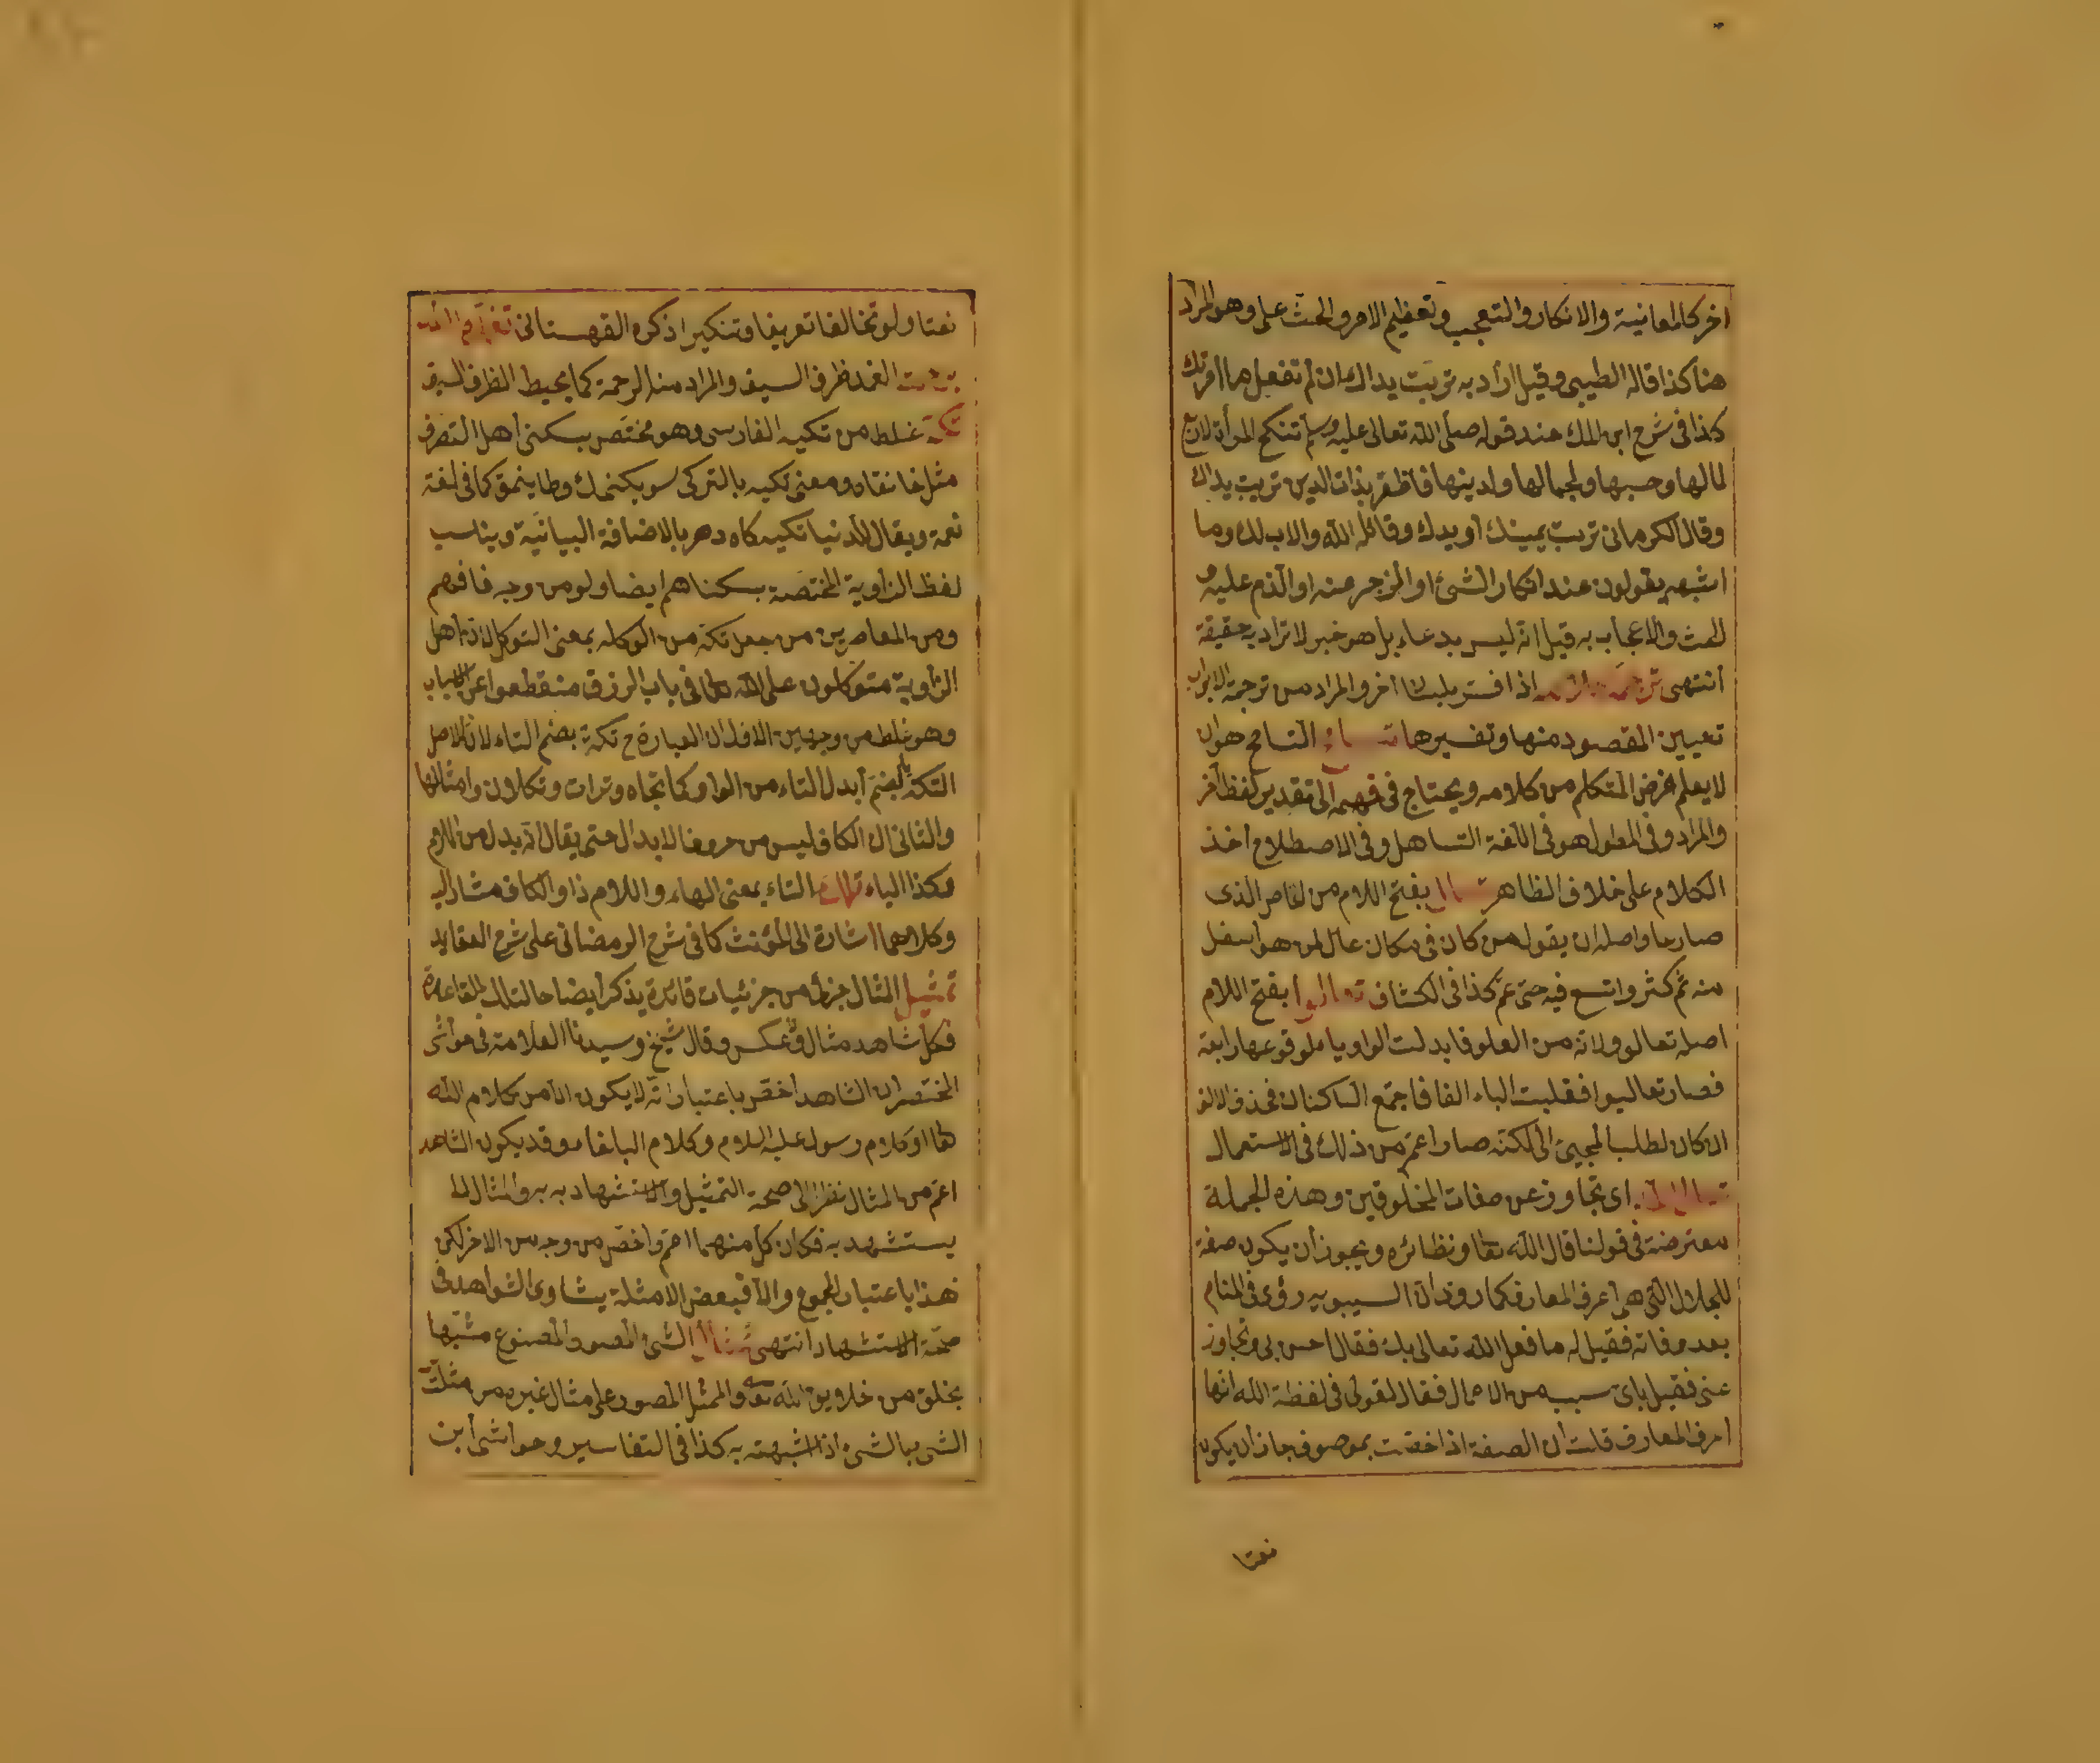 اخر كالمعاتبة والانكار والتعجب وتعظيم الامر والحث على وهو المراد
هنا كذا قاله الطيبى وقيل اراد به تربت يداك ان لم تفعل ما امرتك
كذا فى شرح ابن الملك عند قوله صلى الله تعالى عليه وسلم تنكح المرأة لاربع
لمالها وحسبها ولجمالها ولدينها فاظفر بذات الدين تربت يداك
وقال الكرمانى تربت يمينك او يدك وقاتله الله والاب لك وما
اشبهه يقولون عند انكار الشئ او الزجر عنه او الذم عليه او
للحث والاعجاب به قيل انه ليس بدعاء بل هو خبر لا تراد به حقيقة
انتهى اذا فسر بلسان اخر والمراد من ترجمة الابواب
تعيين المقصود منها وتفسيرها التسامح هو ان
لا يعلم غرض المتكلم من كلامه ويحتاج فى فهمه الى تقدير لفظ آخر
والمراد وفى المطول هو فى اللغة التساهل وفى الاصطلاح اخذ
الكلام على خلاف الظاهر بفتح اللام من الخاص الذى
صار عاما واصله ان يقول من كان فى مكان عال لمن هو اسفل
منه ثم كثر واتسع فيه حتى عم كذا فى الكشاف تعالوا بفتح اللام
اصله تعالو ولانه من العلو فابدلت الواو ياء لوقوعها رابعة
فصار تعاليوا فقلبت الياء الفا فاجتمع الساكنان فحذف الالف
ان كان لطلب المجيئ الى لكنه صار اعم من ذلك فى الاستعمال
اى تجاوز عن صفات المخلوقين وهذه الجملة
معترضة فى قولنا قال الله تعا ونظائره ويجوز ان يكون صفة
للجلال التى هى اعرف المعارف كما روى ان السيبويه رؤى فى المنام
بعد وفاته فقيل له ما فعل الله تعالى بك فقال احسن بى وتجاوز
عنى فقيل باى سبب من الاعمال فقال لقولى فى لفظة الله انها
اعرف المعارف قلت ان الصفة اذا اختصت بموصوف جاز ان يكون
نعتا
نعتا ولو تخالفا تعريفا وتنكيرا ذكره القهستانى
الغمد ظرف السيف والمراد منه الرحمة كما يحيط الظرف السيف
تكية غلط من تكيه الفارسى وهو مختص بسكنى اهل التصوف
مثل خانقاه ومعنى تكيه بالتركى سويكنمك وطاينمق كما فى لغة
نعمة ويقال للدنيا تكيه كاه دهر بالاضافة البيانية ويناسب
لفظ الزاوية المختصة بسكناهم ايضا ولو من وجه فافهم
ومن المعاصرين من جعل تكة من الوكله بمعنى التوكل اذ اهل
الزاوية متوكلون على الله تعا فى باب الرزق منقطعوا عن الاسباب
وهو غلط من وجهين الاول ان العبارة ح تكة بضم التاء لان الاصل
التكة بالضم ابدل التاء من الواو كما تجاه وتراث وتكلان وامثالها
والثانى ان الكاف ليس من حروف الابدال حتى يقال انه بدل من اللام
وكذا الياء تلك التاء بمعنى الهاء واللام ذا والكاف مشار اليه
وكلاهما اشارة الى المؤنث كما فى شرح الرمضانى على شرح العقايد
تمثيل المثال جزء من جزئيات قاعدة يذكر ايضاحا لتلك القاعدة
فكل شاهد مثال ولا عكس وقال شيخ وسيدنا العلامة فى حواشى
المختصر ان الشاهد اخص باعتبار انه لا يكون الا من كلام الله
تعا او كلام رسول عليه السلام وكلام البلغاء وقد يكون الشاهد
اعم من المثال نظرا الى صحة التمثيل والاستشهاد به والمثال لما
يستشهد به فكان كل منهما اعم واخص من وجه من الاخر لكن
هذا باعتبار المجموع والا فبعض الامثلة يساوى الشواهد فى
صحة الاستشهاد انتهى الشئ المصور والمصنوع مشبها
بخلق من خلايق الله تعا والممثل المصور على مثال غيره من مثلت
الشئ بالشئ اذا شبهته به كذا فى التفاسير وحواشى ابن